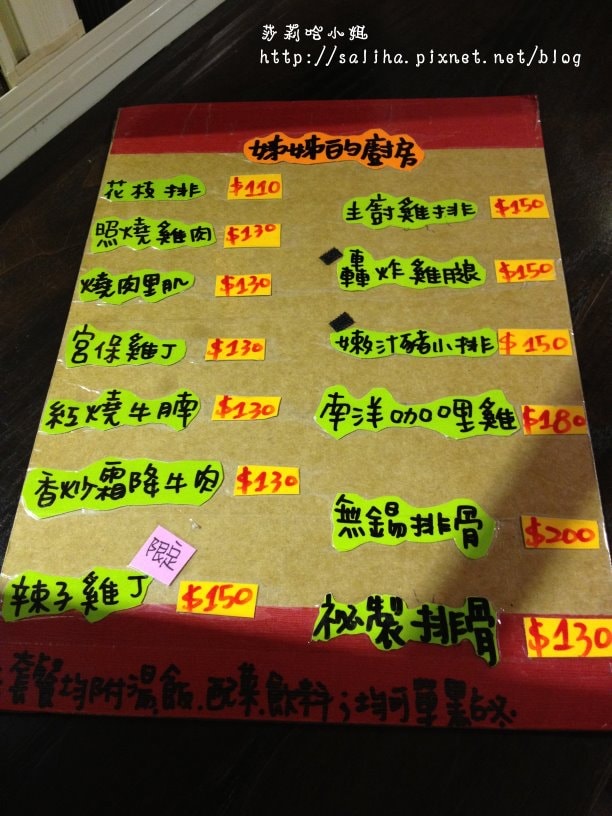 莎莉哈小姐
http://saliha.pixnet.net/blog
姊姊的廚房
花枝排 $110
照燒雞肉 $130
燒肉里肌 $130
宮保雞丁 $130
紅燒牛腩 $130
香炒霜降牛肉 $130
限定
辣子雞丁 $150
主廚雞排 $150
轟炸雞腿 $150
嫩汁豬小排 $150
南洋咖哩雞 $180
無錫排骨 $200
祕製排骨 $130
套餐均附湯.飯.配菜.飲料;均可單點